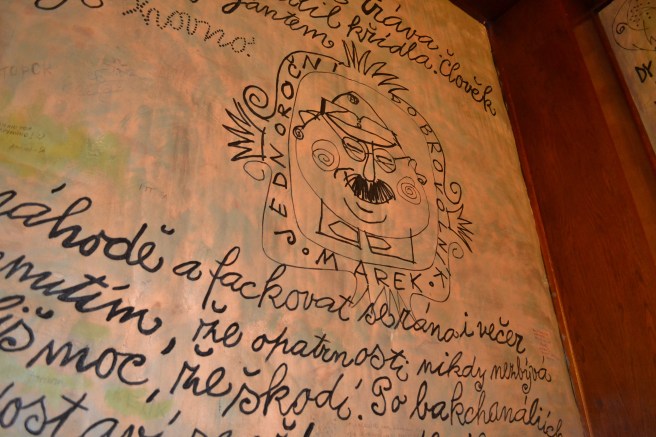 tráva
dil křídla. Člověk
gantem
hovno.
JEDNOROČNÍ DOBROVOLNÍK
J. MAREK.
náhodě a fackovat se ráno i večer
nutím, že opatrnosti nikdy nezbývá
iš moc, že škodí. Po bakchanáliích
DY